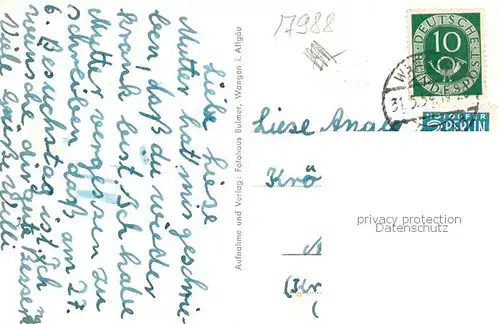 Liebe Liese
Mutter hat mir geschrie-
ben, daß du wieder
krank bist. Ich habe
Mutter vergessen zu
schreiben daß am 27.
6. Besuchstag ist. Ich
wünsche dir gute Besserung
Viele Grüße Willi
Aufnahme und Verlag: Fotohaus Bulmer, Wangen i. Allgäu
17988
DEUTSCHE
BUNDESPOST
10
31.5.54
NOTOPFER
2 BERLIN
Liese
Krö
privacy protection
Datenschutz
(Kr